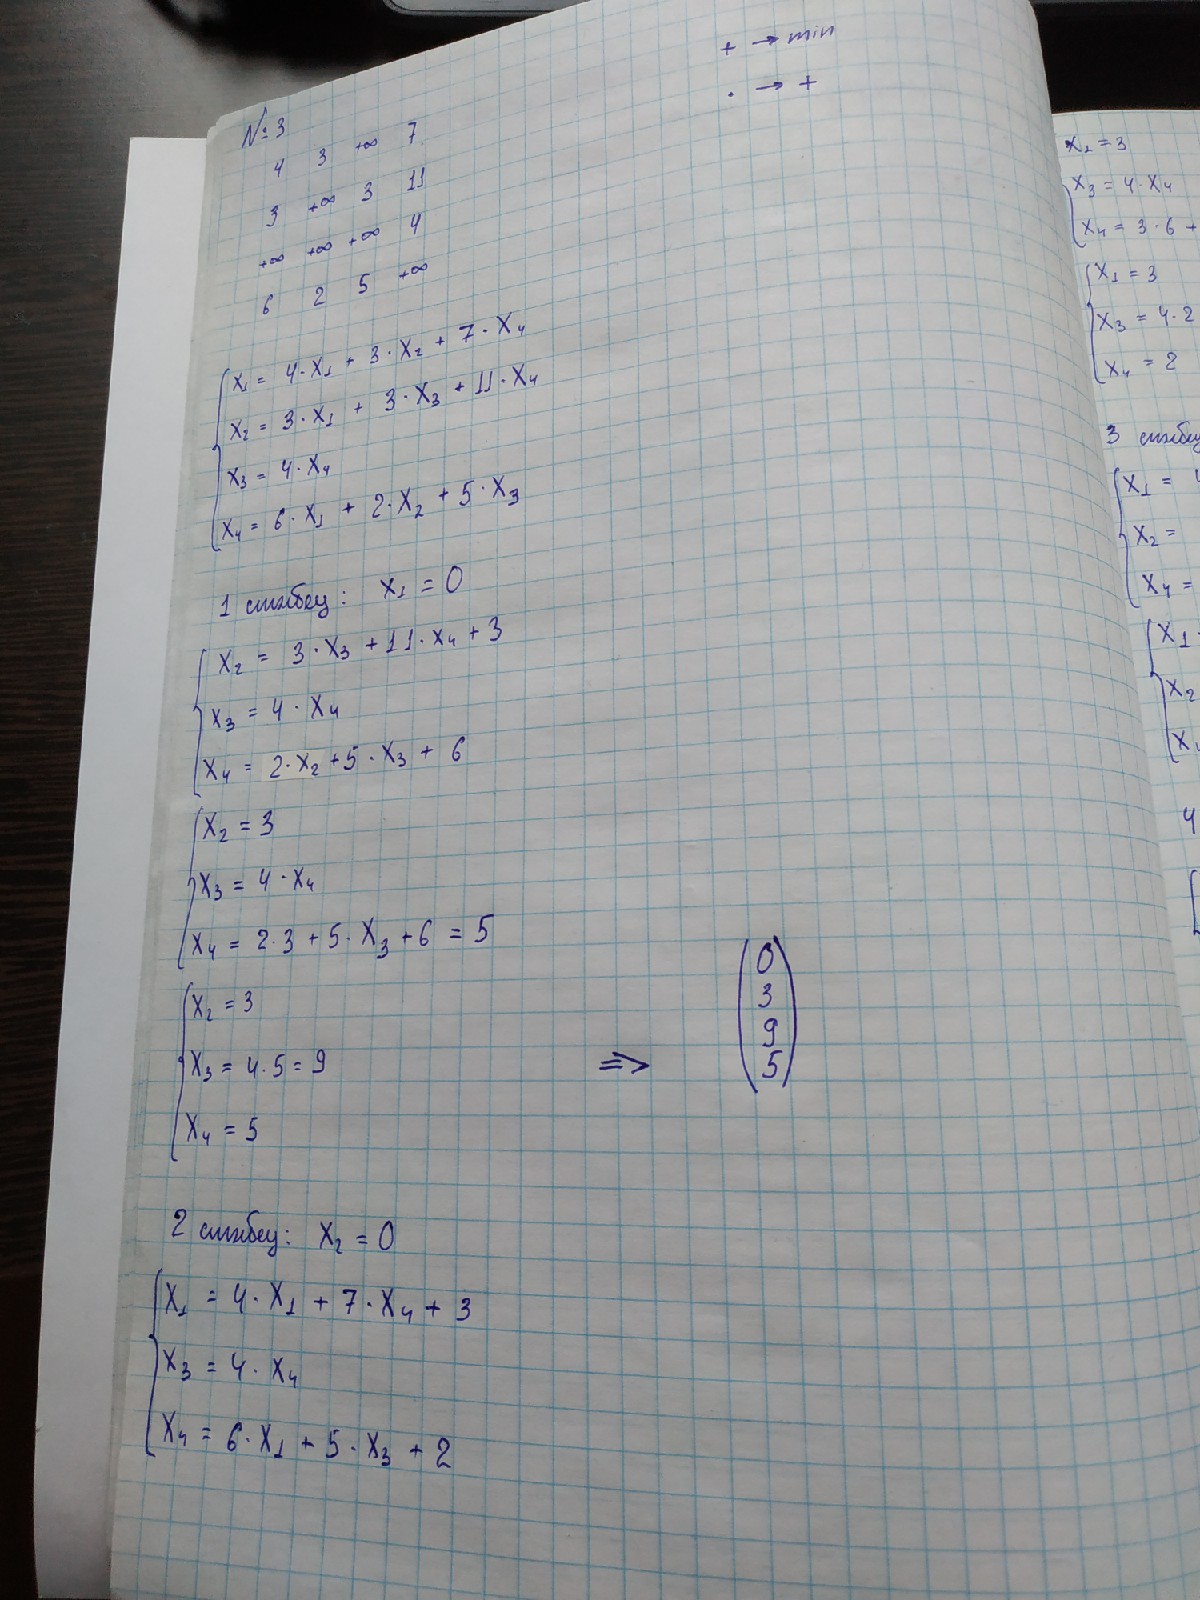 + → min
· → +
№ 3
4 3 +∞ 7
3 +∞ 3 11
+∞ +∞ +∞ 4
6 2 5 +∞
x₁ = 4·x₁ + 3·x₂ + 7·x₄
x₂ = 3·x₁ + 3·x₃ + 11·x₄
x₃ = 4·x₄
x₄ = 6·x₁ + 2·x₂ + 5·x₃
1 столбец: x₁ = 0
x₂ = 3·x₃ + 11·x₄ + 3
x₃ = 4·x₄
x₄ = 2·x₂ + 5·x₃ + 6
x₂ = 3
x₃ = 4·x₄
x₄ = 2·3 + 5·x₃ + 6 = 5
x₂ = 3
x₃ = 4·5 = 9
x₄ = 5
=>
0
3
9
5
2 столбец: x₂ = 0
x₁ = 4·x₁ + 7·x₄ + 3
x₃ = 4·x₄
x₄ = 6·x₁ + 5·x₃ + 2
x₂ = 3
x₃ = 4·x₄
x₄ = 3·6 +
x₁ = 3
x₃ = 4·2
x₄ = 2
3
x₁ =
x₂ =
x₄ =
x₁
x₂
4